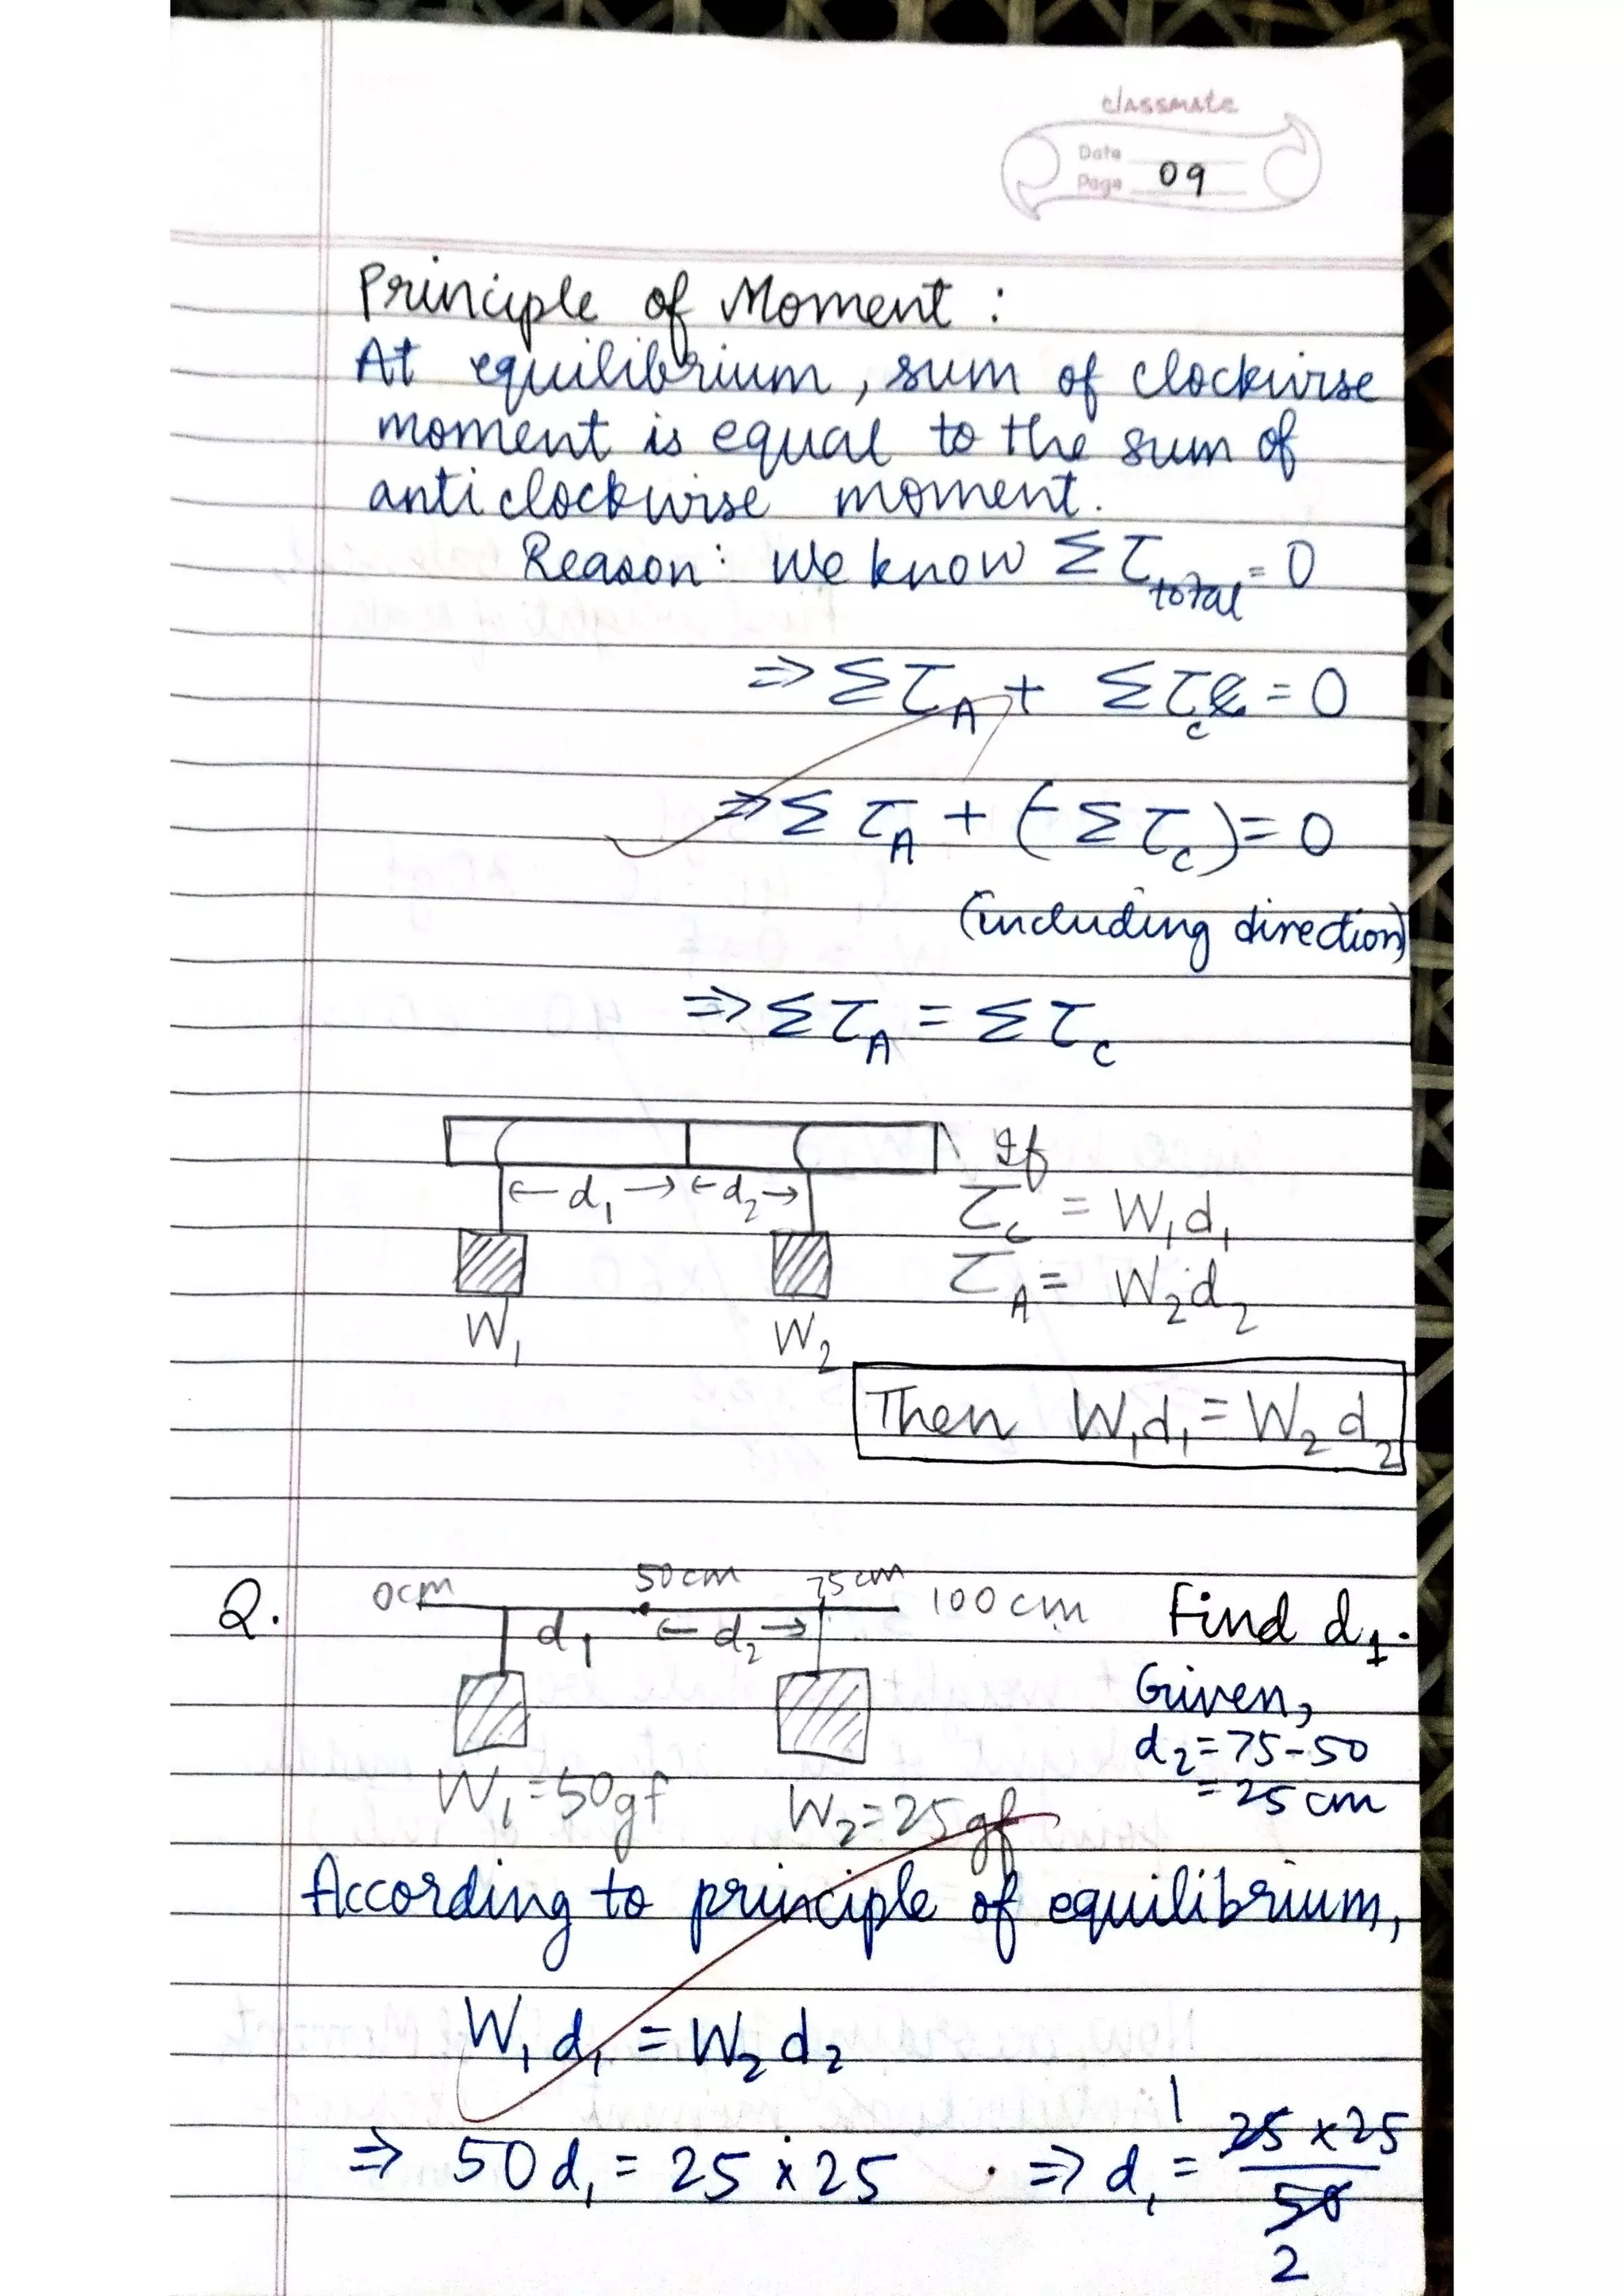 classmate
Date
Page 09
Principle of Moment :
At equilibrium, sum of clockwise
moment is equal to the sum of
anticlockwise moment.
Reason: We know Στ_total = 0
⇒ Στ_A + Στ_c = 0
⇒ Στ_A + (-Στ_c) = 0
(including direction)
⇒ Στ_A = Στ_c
If
←d₁→ ←d₂→ τ_c = W₁d₁
τ_A = W₂d₂
W₁ W₂
Then W₁d₁ = W₂d₂
Q. 0cm 50cm 75cm 100cm Find d₁.
d₁ ←d₂→
Given,
d₂ = 75-50
= 25 cm
W₁ = 50gf W₂ = 25gf
According to principle of equilibrium,
W₁d₁ = W₂d₂
⇒ 50d₁ = 25 × 25 ⇒ d₁ = 25 × 25 / 50
1
2